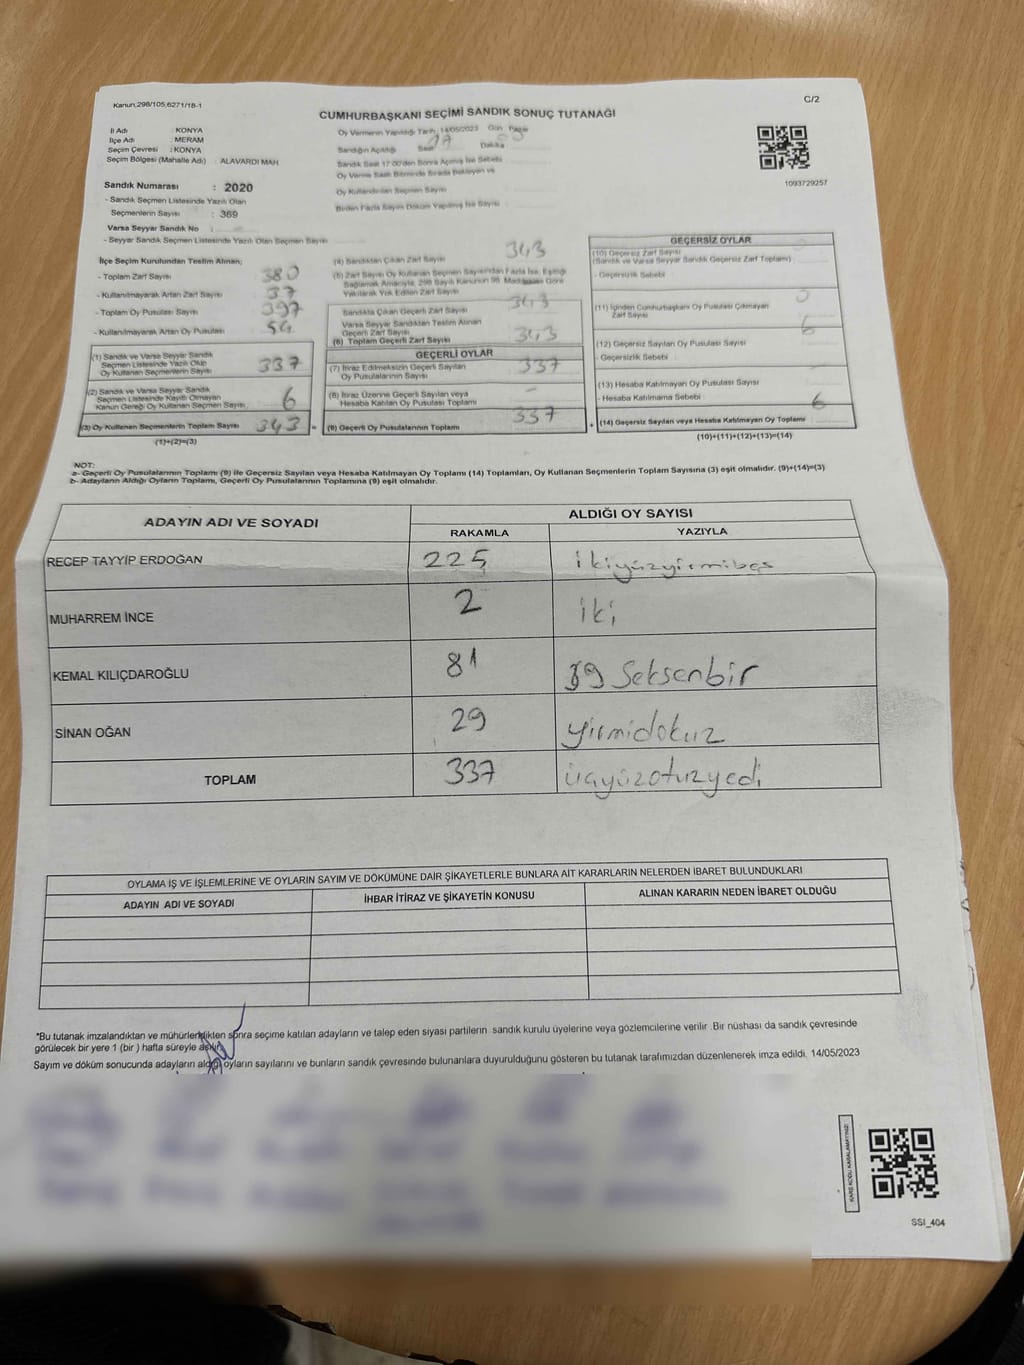 Kanun,298/105,6271/18-1
C/2
CUMHURBAŞKANI SEÇİMİ SANDIK SONUÇ TUTANAĞI
İl Adı : KONYA
İlçe Adı : MERAM
Seçim Çevresi : KONYA
Seçim Bölgesi (Mahalle Adı) : ALAVARDI MAH
Sandık Numarası : 2020
- Sandık Seçmen Listesinde Yazılı Olan
Seçmenlerin Sayısı : 369
Varsa Seyyar Sandık No :
- Seyyar Sandık Seçmen Listesinde Yazılı Olan Seçmen Sayısı
Oy Vermenin Yapıldığı Tarih: 14/05/2023 Gün Pazar
Sandığın Açıldığı Saat Dakika
Sandık Saat 17.00'den Sonra Açılmış İse Sebebi
Oy Verme Saati Bitiminde Sırada Bekleyen ve
Oy Kullandırılan Seçmen Sayısı
Birden Fazla Sayım Döküm Yapılmış İse Sayısı
1093729257
İlçe Seçim Kurulundan Teslim Alınan;
- Toplam Zarf Sayısı 380
- Kullanılmayarak Artan Zarf Sayısı 37
- Toplam Oy Pusulası Sayısı 397
- Kullanılmayarak Artan Oy Pusulası 54
(1) Sandık ve Varsa Seyyar Sandık
Seçmen Listesinde Yazılı Olup
Oy Kullanan Seçmenlerin Sayısı 337
(2) Sandık ve Varsa Seyyar Sandık
Seçmen Listesinde Kayıtlı Olmayan
Kanun Gereği Oy Kullanan Seçmen Sayısı 6
(3) Oy Kullanan Seçmenlerin Toplam Sayısı 343 =
(1)+(2)=(3)
(4) Sandıktan Çıkan Zarf Sayısı 343
(5) Zarf Sayısı Oy Kullanan Seçmen Sayısından Fazla İse, Eşitliği
Sağlamak Amacıyla, 298 Sayılı Kanunun 98. Maddesine Göre
Yakılarak Yok Edilen Zarf Sayısı
Sandıkta Çıkan Geçerli Zarf Sayısı 343
Varsa Seyyar Sandıktan Teslim Alınan
Geçerli Zarf Sayısı
(6) Toplam Geçerli Zarf Sayısı 343
GEÇERLİ OYLAR
(7) İtiraz Edilmeksizin Geçerli Sayılan
Oy Pusulalarının Sayısı 337
(8) İtiraz Üzerine Geçerli Sayılan veya
Hesaba Katılan Oy Pusulası Toplamı -
(9) Geçerli Oy Pusulalarının Toplamı 337 +
GEÇERSİZ OYLAR
(10) Geçersiz Zarf Sayısı
(Sandık ve Varsa Seyyar Sandık Geçersiz Zarf Toplamı)
- Geçersizlik Sebebi
(11) İçinden Cumhurbaşkanı Oy Pusulası Çıkmayan
Zarf Sayısı 0
(12) Geçersiz Sayılan Oy Pusulası Sayısı 6
- Geçersizlik Sebebi
(13) Hesaba Katılmayan Oy Pusulası Sayısı
- Hesaba Katılmama Sebebi
(14) Geçersiz Sayılan veya Hesaba Katılmayan Oy Toplamı 6
(10)+(11)+(12)+(13)=(14)
NOT:
a- Geçerli Oy Pusulalarının Toplamı (9) ile Geçersiz Sayılan veya Hesaba Katılmayan Oy Toplamı (14) Toplamları, Oy Kullanan Seçmenlerin Toplam Sayısına (3) eşit olmalıdır. (9)+(14)=(3)
b- Adayların Aldığı Oyların Toplamı, Geçerli Oy Pusulalarının Toplamına (9) eşit olmalıdır.
ADAYIN ADI VE SOYADI
ALDIĞI OY SAYISI
RAKAMLA YAZIYLA
RECEP TAYYİP ERDOĞAN 225 ikiyüzyirmibeş
MUHARREM İNCE 2 iki
KEMAL KILIÇDAROĞLU 81 Seksenbir
SİNAN OĞAN 29 yirmidokuz
TOPLAM 337 üçyüzotuzyedi
OYLAMA İŞ VE İŞLEMLERİNE VE OYLARIN SAYIM VE DÖKÜMÜNE DAİR ŞİKAYETLERLE BUNLARA AİT KARARLARIN NELERDEN İBARET BULUNDUKLARI
ADAYIN ADI VE SOYADI İHBAR İTİRAZ VE ŞİKAYETİN KONUSU ALINAN KARARIN NEDEN İBARET OLDUĞU
*Bu tutanak imzalandıktan ve mühürlendikten sonra seçime katılan adayların ve talep eden siyasi partilerin sandık kurulu üyelerine veya gözlemcilerine verilir. Bir nüshası da sandık çevresinde
görülecek bir yere 1 (bir ) hafta süreyle asılır.
Sayım ve döküm sonucunda adayların aldığı oyların sayılarını ve bunların sandık çevresinde bulunanlara duyurulduğunu gösteren bu tutanak tarafımızdan düzenlenerek imza edildi. 14/05/2023
KARE KODU KARALAMAYINIZ!
SSI_404